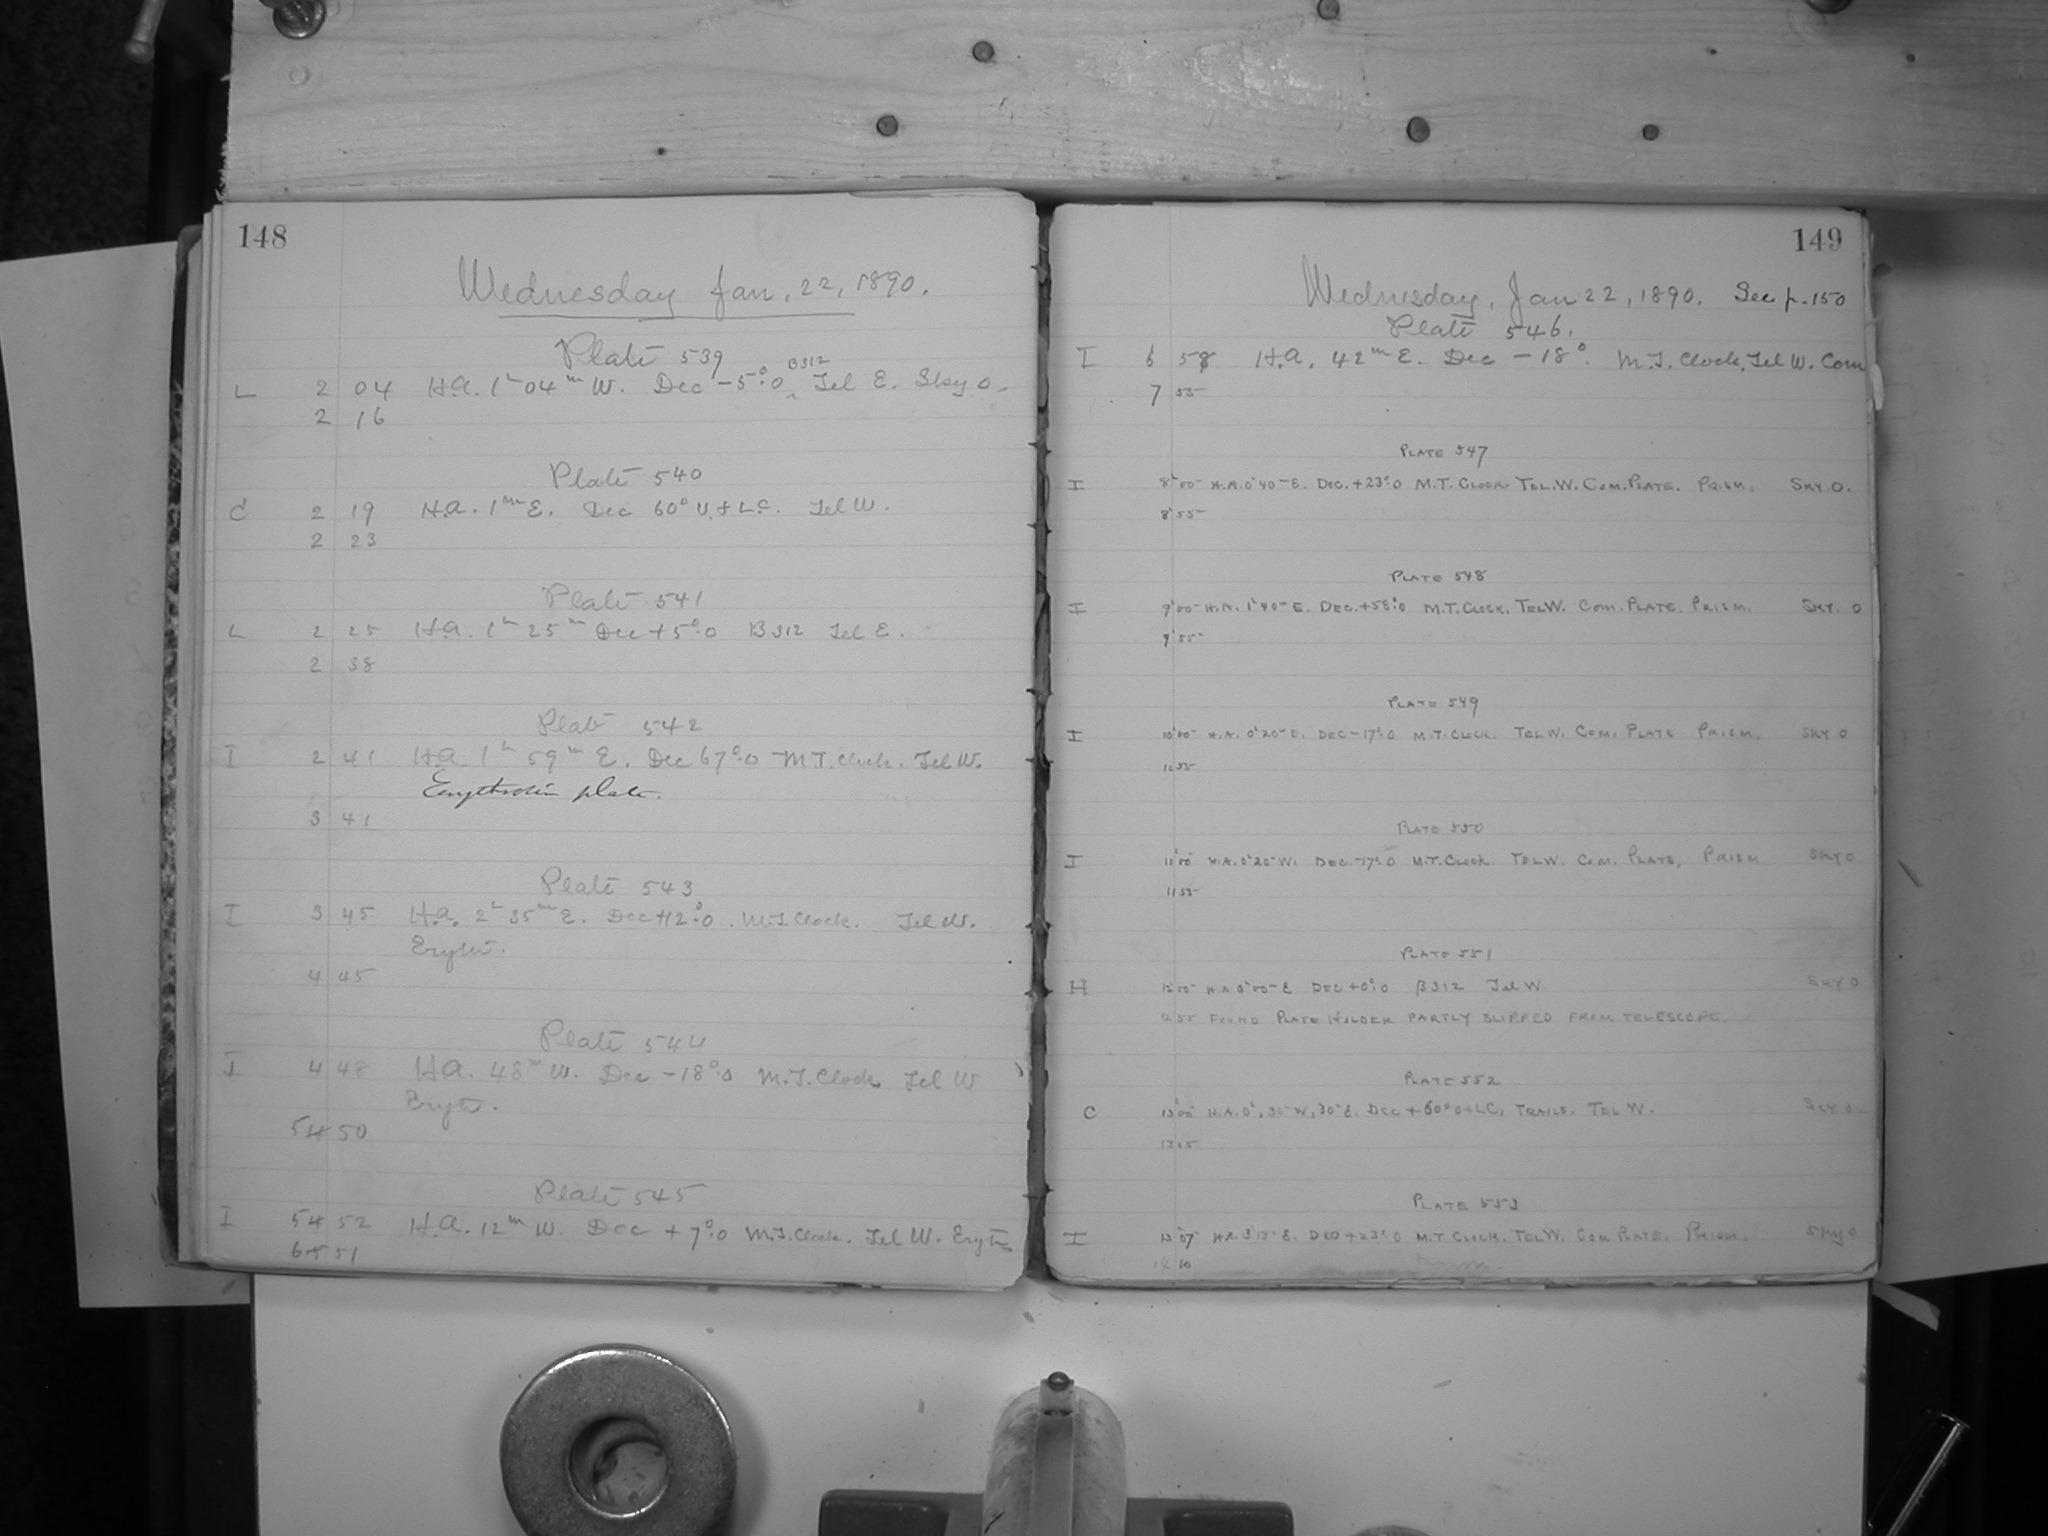 148
Wednesday Jan. 22, 1890.
Plate 539
L 2 04 H.a. 1h 04m W. Dec -5°.0 B312 Tel E. Sky 0
2 16
Plate 540
C 2 19 H.a. 1m E. Dec 60° U. & L.C. Tel W.
2 23
Plate 541
L 2 25 H.a. 1h 25m Dec +5°.0 B312 Tel E.
2 38
Plate 542
I 2 41 H.a. 1h 59m E. Dec 67°.0 M.T. Clock. Tel W.
Erythrosin plate.
3 41
Plate 543
I 3 45 H.a. 2h 35m E. Dec +12°.0. M.T. Clock. Tel W.
Eryth.
4 45
Plate 544
I 4 48 H.a. 48m W. Dec -18°.0 M.T. Clock Tel W
Eryth.
5 50
Plate 545
I 5 52 H.a. 12m W. Dec +7°.0 M.T. Clock. Tel W. Eryth
6 51
149
Wednesday, Jan 22, 1890. See p. 150
Plate 546.
I 6 58 H.a. 42m E. Dec -18°. M.T. Clock, Tel W. Com
7 55
PLATE 547
I 8h 00 H.A. 0h 40m E. DEC. +23°.0 M.T. CLOCK. TEL. W. COM. PLATE. PRISM. SKY 0.
8 55
PLATE 548
I 9h 00 H.A. 1h 40m E. DEC. +58°.0 M.T. CLOCK. TEL W. COM. PLATE. PRISM. SKY. 0
9 55
PLATE 549
I 10h 00 H.A. 0h 20m E. DEC -17°.0 M.T. CLOCK. TEL W. COM. PLATE PRISM. SKY 0
10 55
PLATE 550
I 11h 00 H.A. 0h 20m W. DEC. -17°.0 M.T. CLOCK TEL W. COM. PLATE, PRISM SKY 0
11 55
PLATE 551
H 12h 00 H.A 0h 00m E DEC +0°.0 B312 Tel W SKY 0
12 55 FOUND PLATE HOLDER PARTLY SLIPPED FROM TELESCOPE.
PLATE 552
C 13h 00 H.A. 0h, 30m W, 30m E. DEC +60° 0 + LC, TRAILS. TEL W. SKY 0.
13 15
PLATE 553
I 13 07 H.A. 3h 13m E. DEC +23°.0 M.T. CLOCK. TEL W. COM PLATE. PRISM. SKY 0
14 10